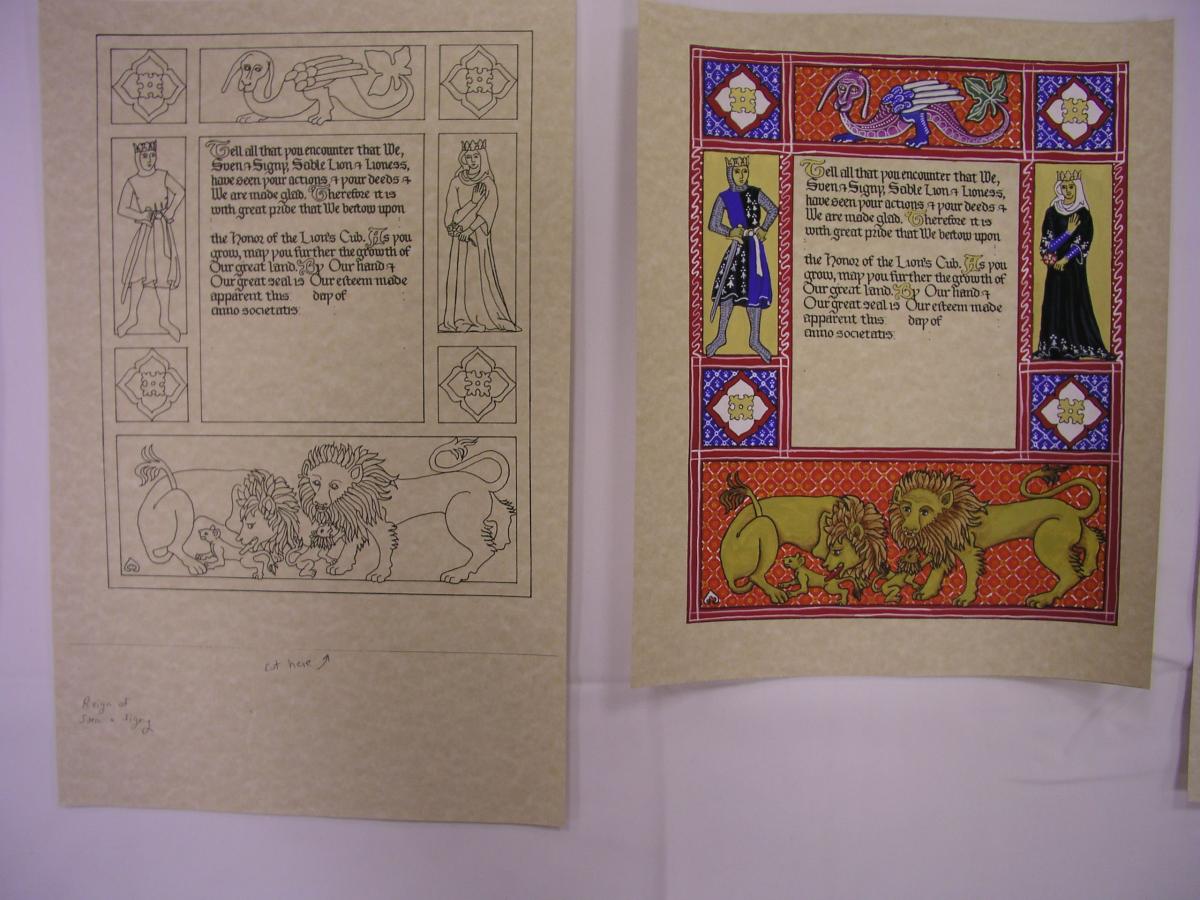 Tell all that you encounter that We,
Sven & Signy, Sable Lion & Lioness,
have seen your actions & your deeds &
We are made glad. Therefore it is
with great pride that We bestow upon
the Honor of the Lion's Cub. As you
grow, may you further the growth of
Our great land. By Our hand &
Our great seal is Our esteem made
apparent this day of
anno societatis
cut here
Reign of
Sven & Signy
Tell all that you encounter that We,
Sven & Signy, Sable Lion & Lioness,
have seen your actions & your deeds &
We are made glad. Therefore it is
with great pride that We bestow upon
the Honor of the Lion's Cub. As you
grow, may you further the growth of
Our great land. By Our hand &
Our great seal is Our esteem made
apparent this day of
anno societatis